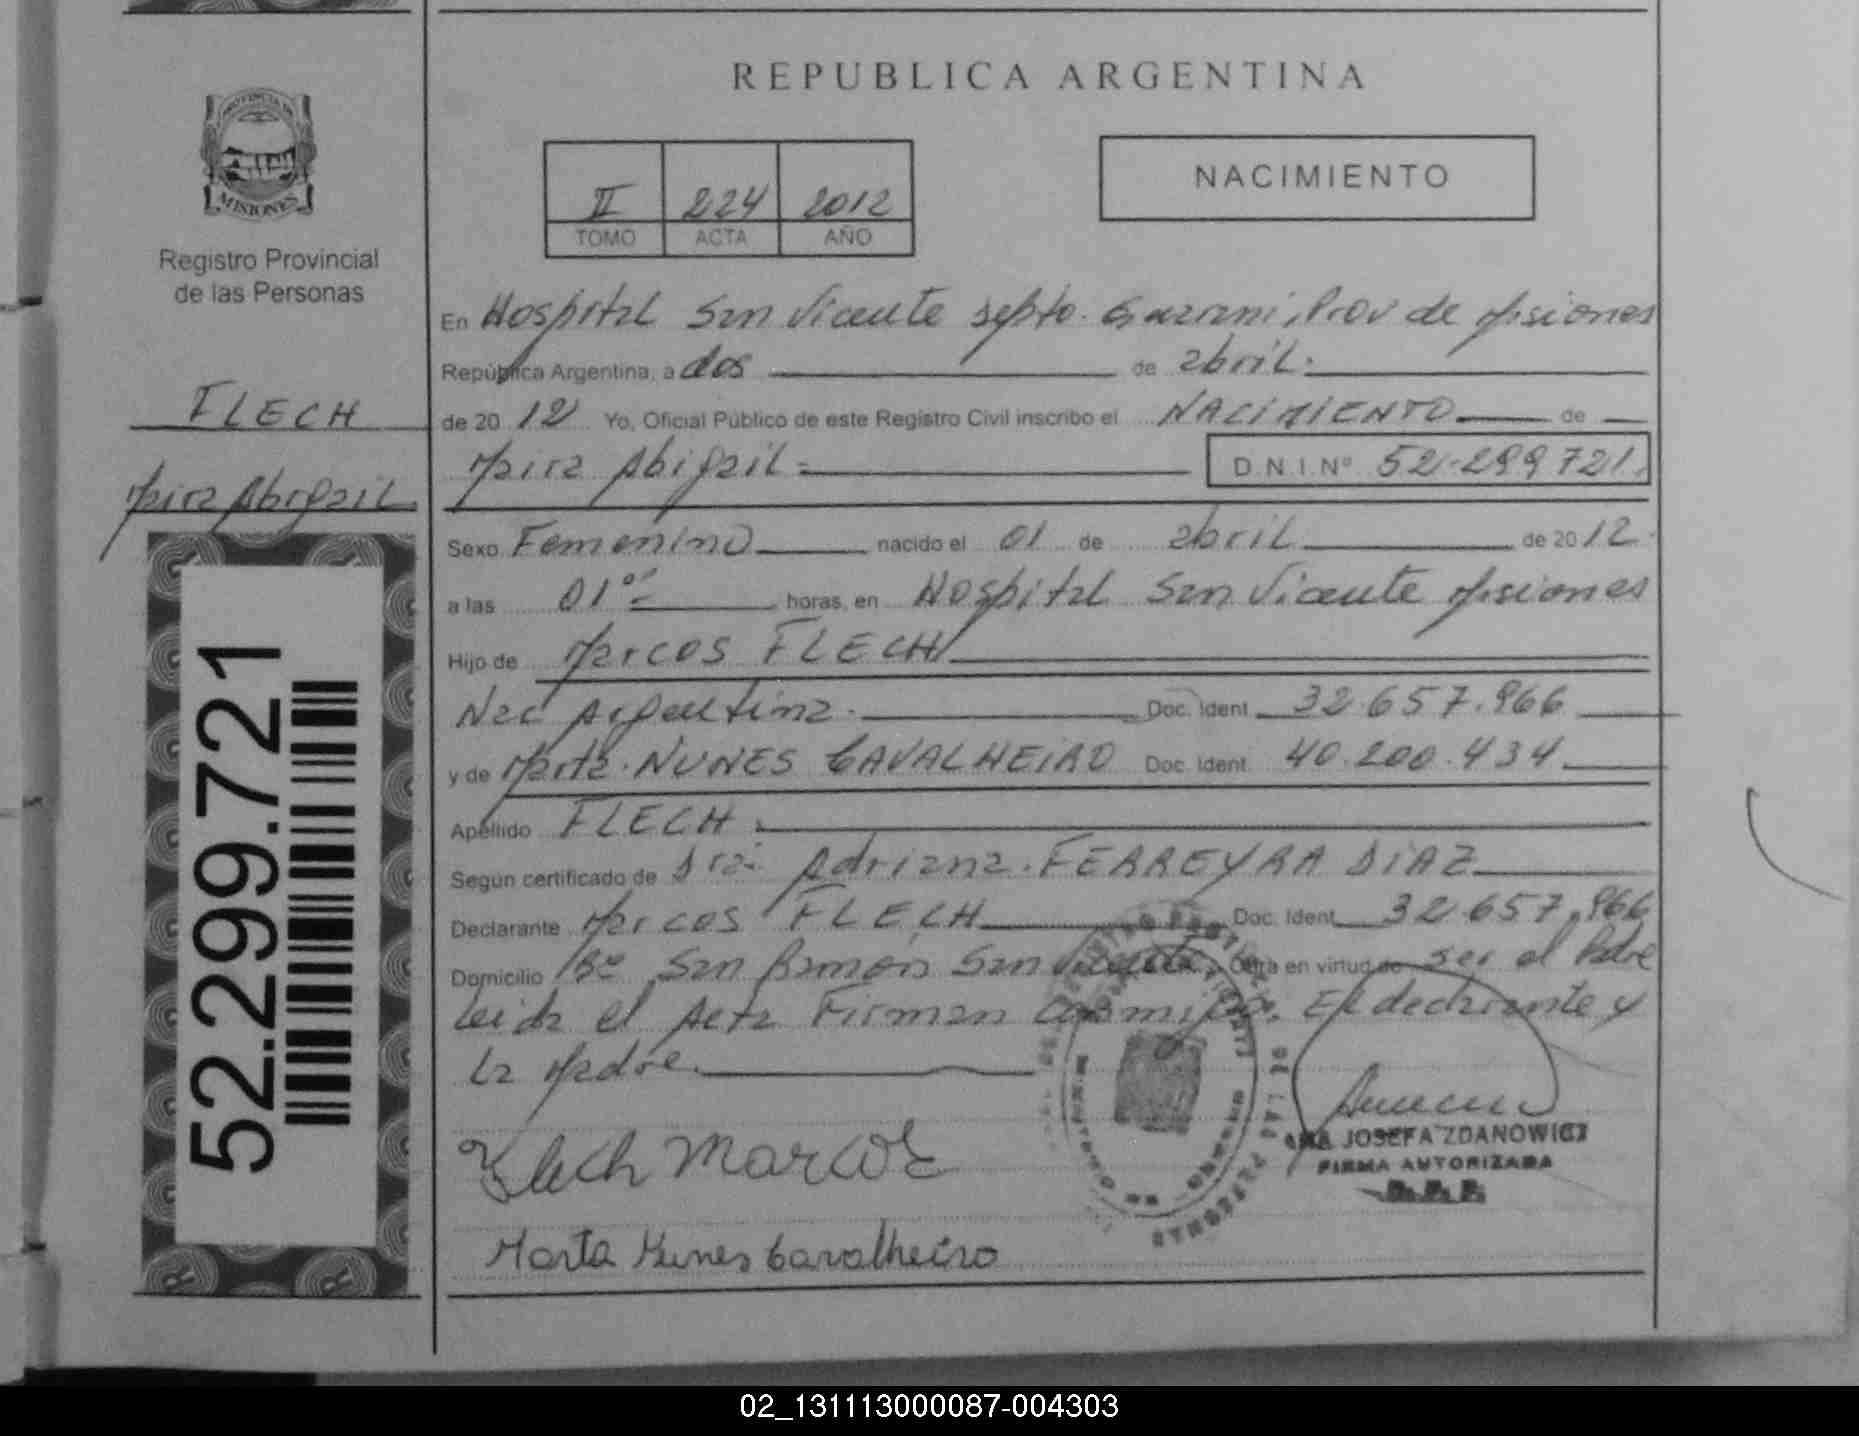 REPUBLICA ARGENTINA
PROVINCIA DE
MISIONES
Registro Provincial
de las Personas
II 224 2012
TOMO ACTA AÑO
NACIMIENTO
FLECH
Maira Abigail
52.299.721
En Hospital San Vicente Depto. Guarani, Prov de Misiones
República Argentina, a dos de abril.
de 20 12 Yo, Oficial Público de este Registro Civil inscribo el NACIMIENTO de
Maira Abigail = D.N.I.Nº 52.299721.
Sexo Femenino nacido el 01 de abril de 20 12.
a las 01º² horas, en Hospital San Vicente Misiones
Hijo de Marcos FLECH
Nac Argentina. Doc. Ident. 32.657.966
y de Marta. NUNES CAVALHEIRO Doc. Ident. 40.200.434
Apellido FLECH.
Según certificado de Dra. Adriana. FERREYRA DIAZ
Declarante Marcos FLECH Doc. Ident. 32.657.966
Domicilio Bº San Ramón San Vicente, Obra en virtud de ser el Padre
Leida el Acta Firman Conmigo. El declarante y
la Madre.
Flech Marcos
ANA JOSEFA ZDANOWICZ
FIRMA AUTORIZADA
R.P.P.
Marta Nunes Cavalheiro
R R
02_131113000087-004303